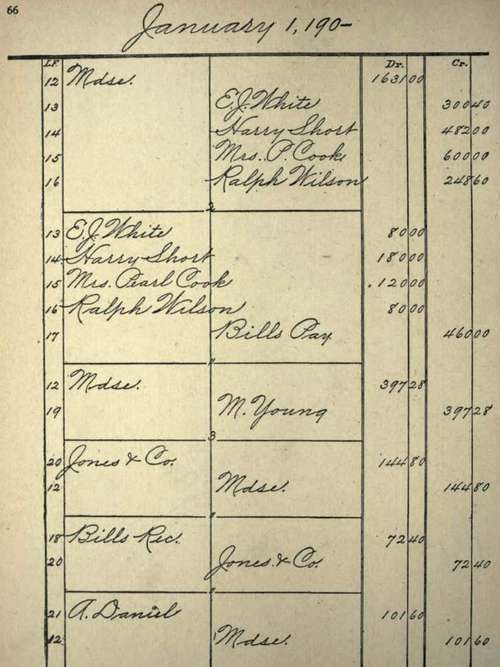 66
January 1, 190-
LF. Dr. Cr.
12 Mdse. 1631 00
13 E.J. White 300 40
14 Harry Short 482 00
15 Mrs. P. Cook 600 00
16 Ralph Wilson 248 60
2
13 E.J. White 80 00
14 Harry Short 180 00
15 Mrs. Pearl Cook 120 00
16 Ralph Wilson 80 00
17 Bills Pay 460 00
12 Mdse. 397 28
19 M. Young 397 28
3
20 Jones & Co. 144 80
12 Mdse. 144 80
18 Bills Rec. 72 40
20 Jones & Co. 72 40
21 A. Daniel 101 60
12 Mdse. 101 60